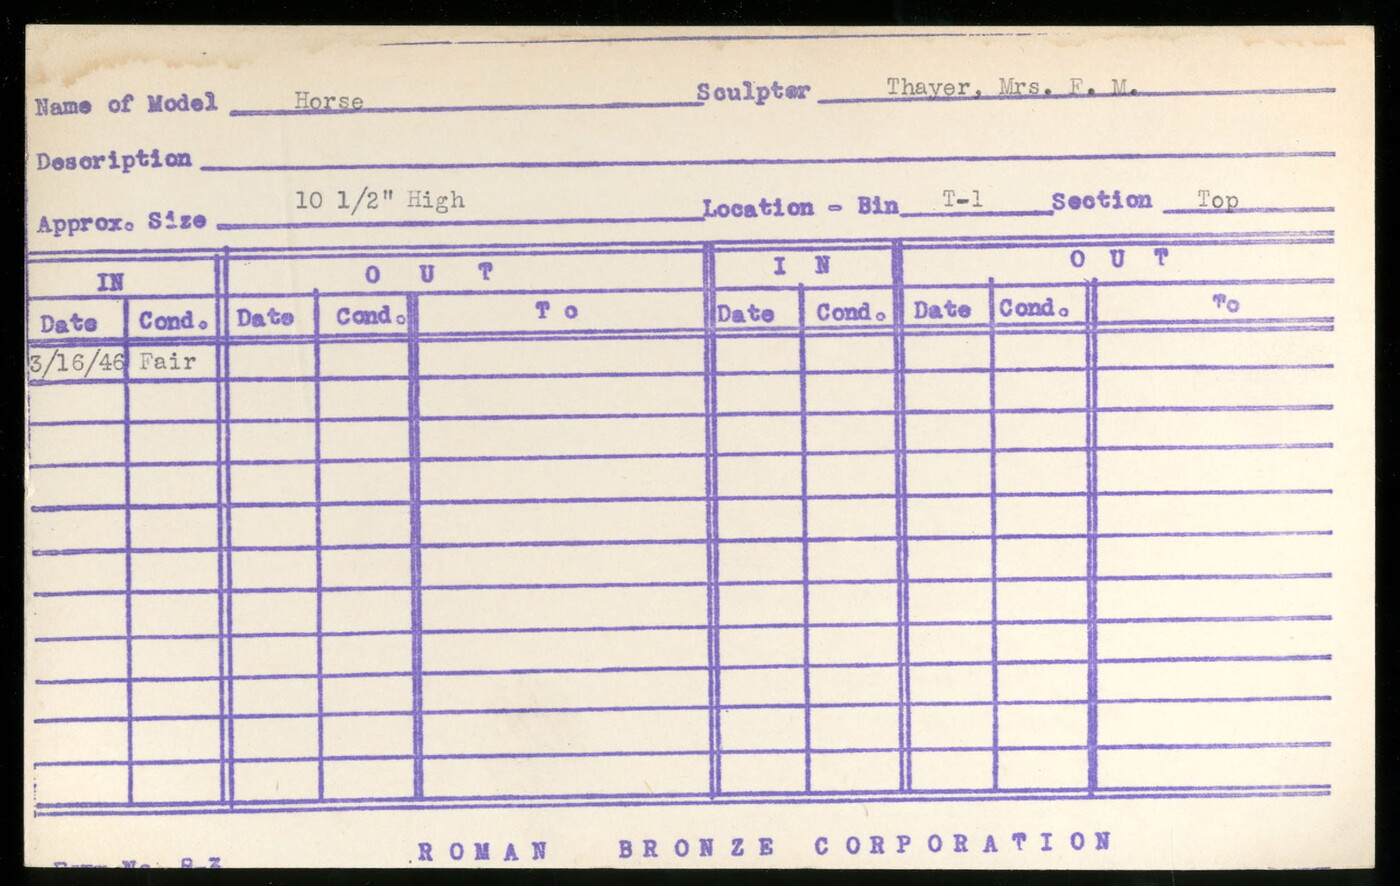 Name of Model Horse Sculptor Thayer, Mrs. F. M.
Description
Approx. Size 10 1/2" High Location - Bin T-1 Section Top
IN OUT IN OUT
Date Cond. Date Cond. To Date Cond. Date Cond. To
3/16/46 Fair
Form No. 8-3
ROMAN BRONZE CORPORATION